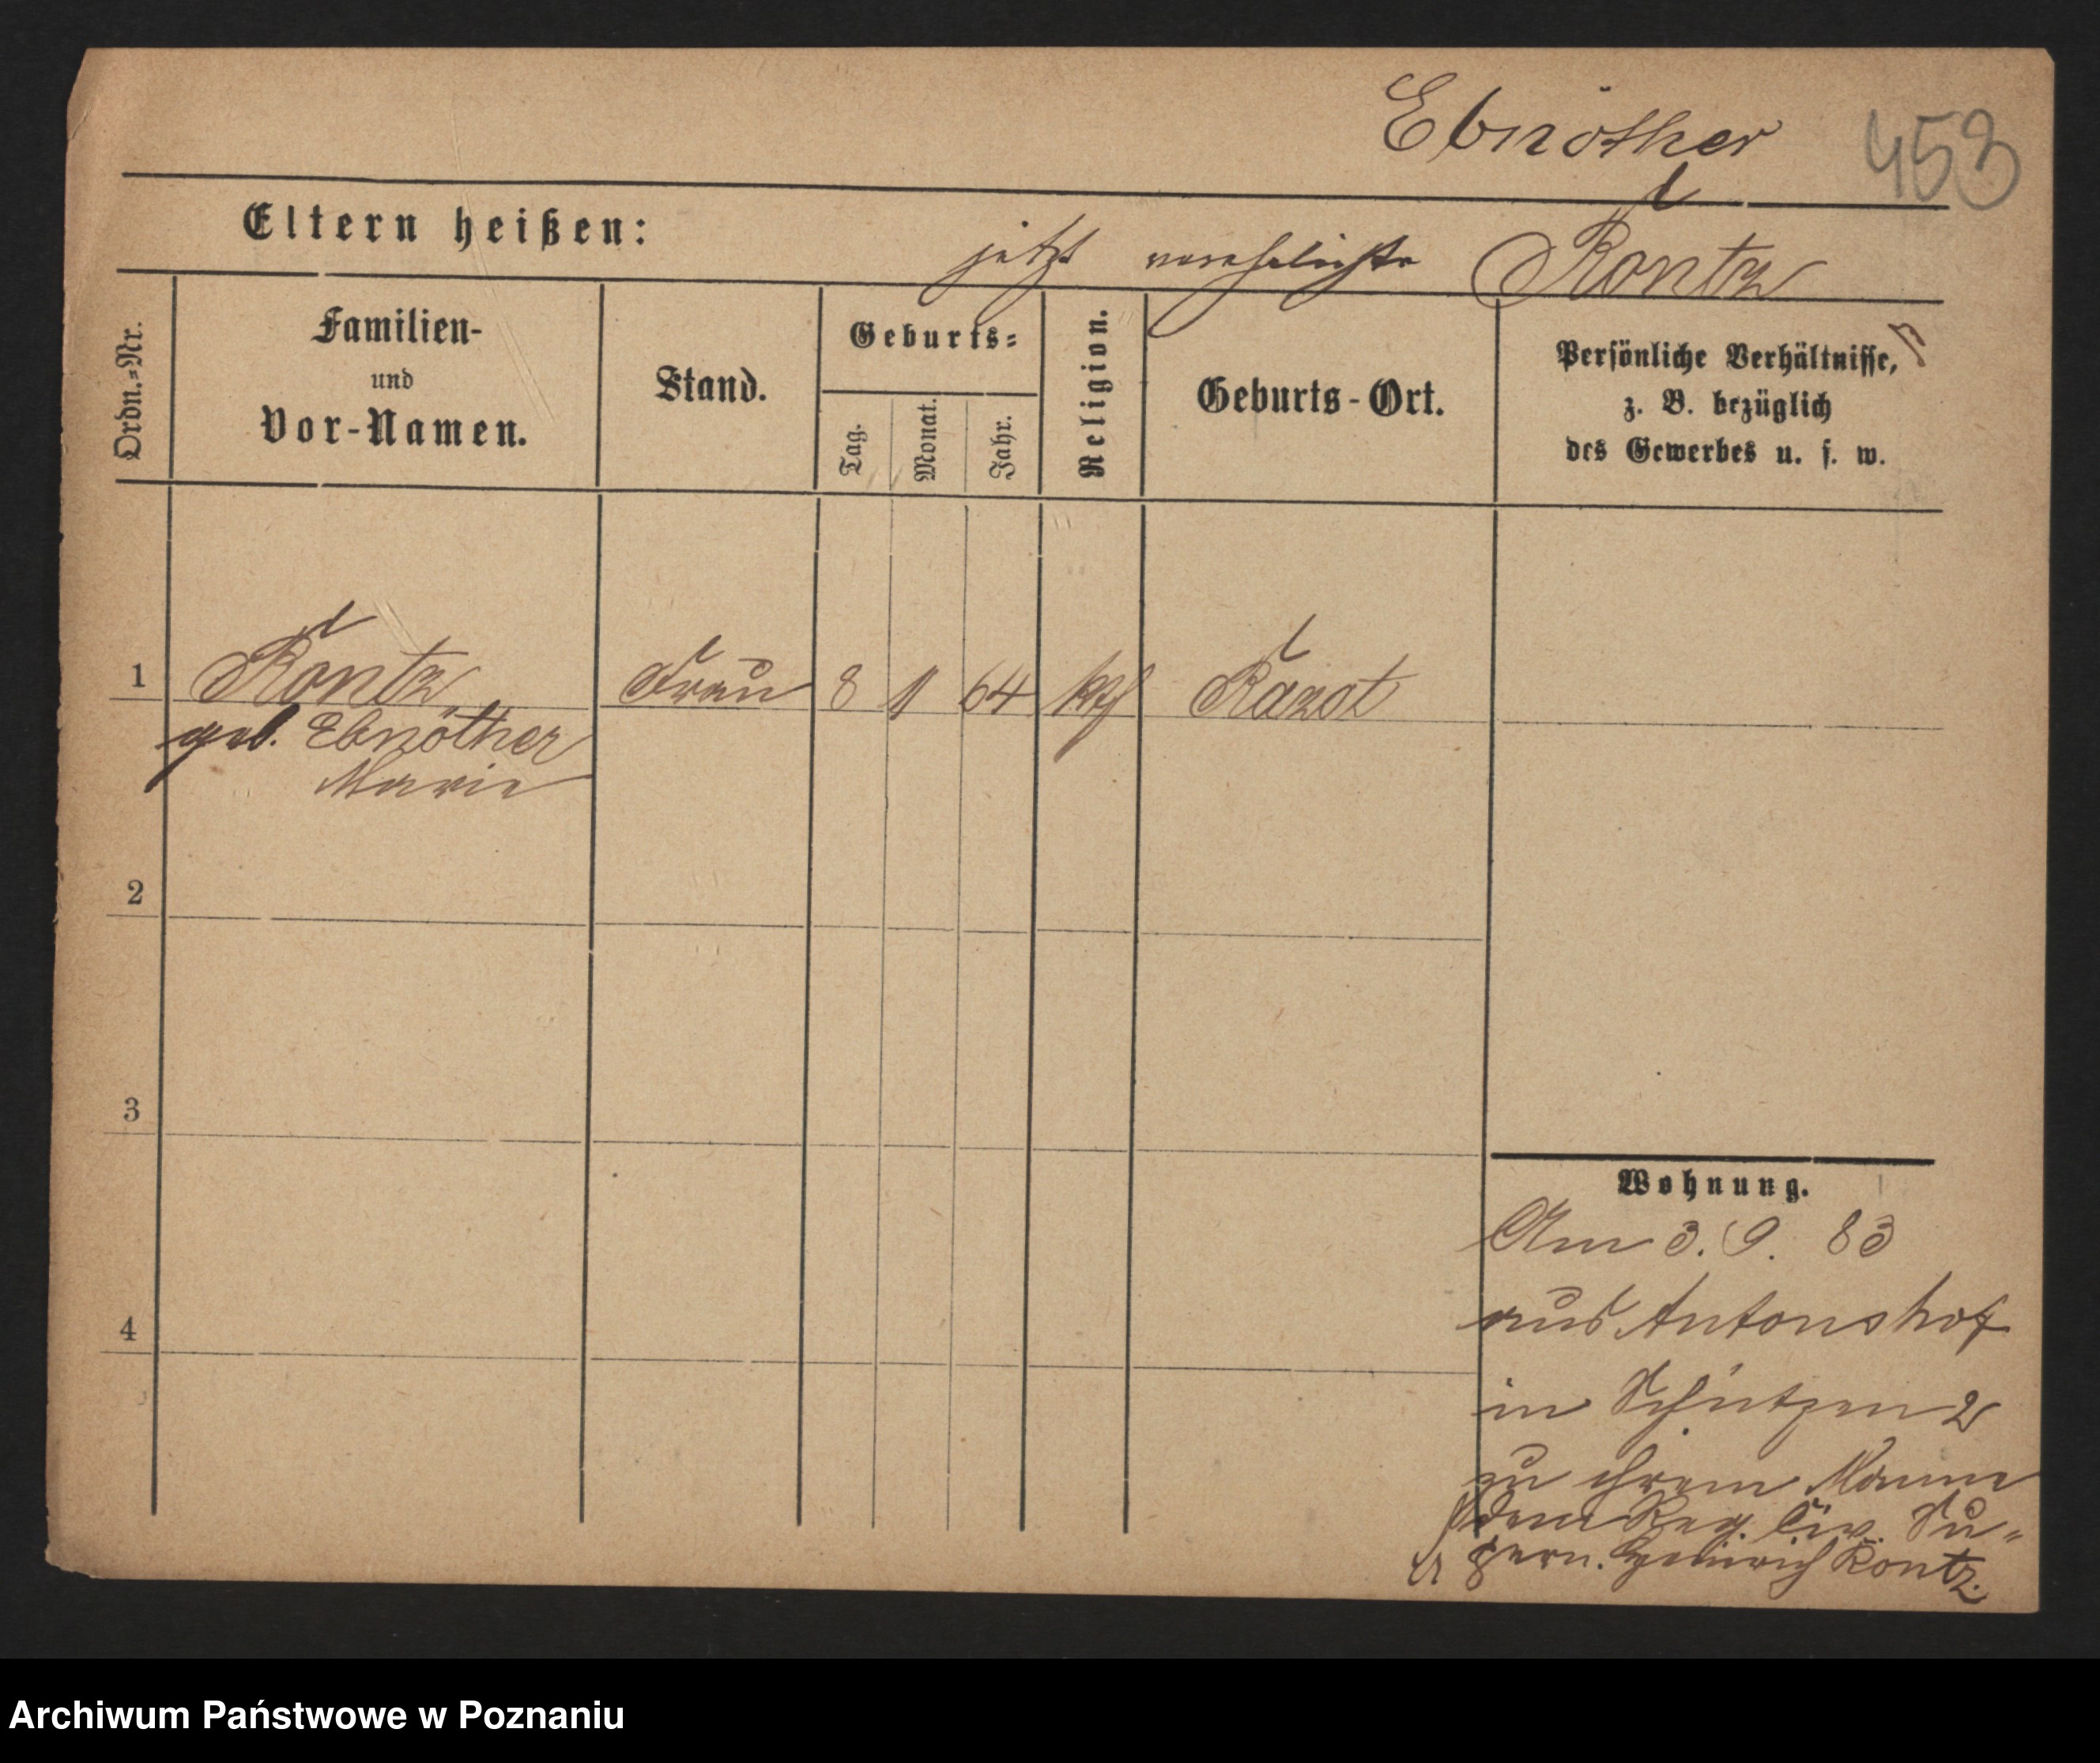 Ebnöther 453
Eltern heißen: jetzt verehelichte Kontz
Ordn.=Nr.
Familien-
und
Vor-Namen.
Stand.
Geburts=
Tag.
Monat.
Jahr.
Religion.
Geburts-Ort.
Persönliche Verhältnisse,
z. B. bezüglich
des Gewerbes u. s. w.
1 Kontz Frau 8 1 64 kth
geb. Ebnöther
Marie
2
3
4
Wohnung.
Am 3. 9. 83
aus Antonshof
in Schützen 2
zu ihrem Manne
dem Reg. Civ. Su=
pern. Heinrich Kontz.
Archiwum Państwowe w Poznaniu